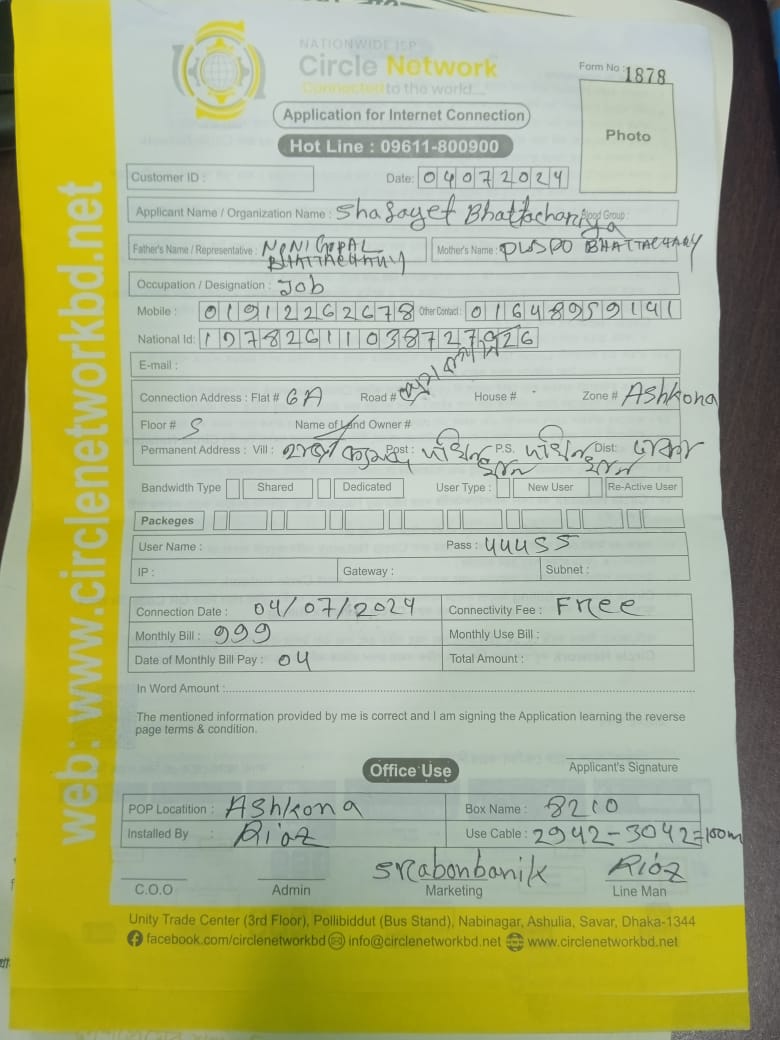 NATIONWIDE ISP
Circle Network
Connected to the world...
Form No : 1878
Application for Internet Connection
Photo
Hot Line : 09611-800900
Customer ID :
Date: 04072024
Applicant Name / Organization Name : Shafayet Bhattachariya Blood Group :
Father's Name / Representative : NONI GOPAL BHATTACHARY Mother's Name : BHATTACHARY
Occupation / Designation : Job
Mobile : 01912262678 Other Contact : 01648959141
National Id:
E-mail :
Connection Address : Flat # 6A Road # House # Zone # Ashkona
Floor # 5 Name of Land Owner #
Permanent Address : Vill : Post : P.S. Dist: ঢাকা
Bandwidth Type Shared Dedicated User Type : New User Re-Active User
Packeges
User Name : Pass : 44455
IP : Gateway : Subnet :
Connection Date : 04/07/2024 Connectivity Fee : Free
Monthly Bill : 999 Monthly Use Bill :
Date of Monthly Bill Pay : 04 Total Amount :
In Word Amount :
The mentioned information provided by me is correct and I am signing the Application learning the reverse
page terms & condition.
Applicant's Signature
Office Use
POP Locatition : Ashkona Box Name : 8210
Installed By : Riaz Use Cable : 2942-3042=100m
Srabonbanik Riaz
C.O.O Admin Marketing Line Man
Unity Trade Center (3rd Floor), Pollibiddut (Bus Stand), Nabinagar, Ashulia, Savar, Dhaka-1344
facebook.com/circlenetworkbd info@circlenetworkbd.net www.circlenetworkbd.net
web: www.circlenetworkbd.net